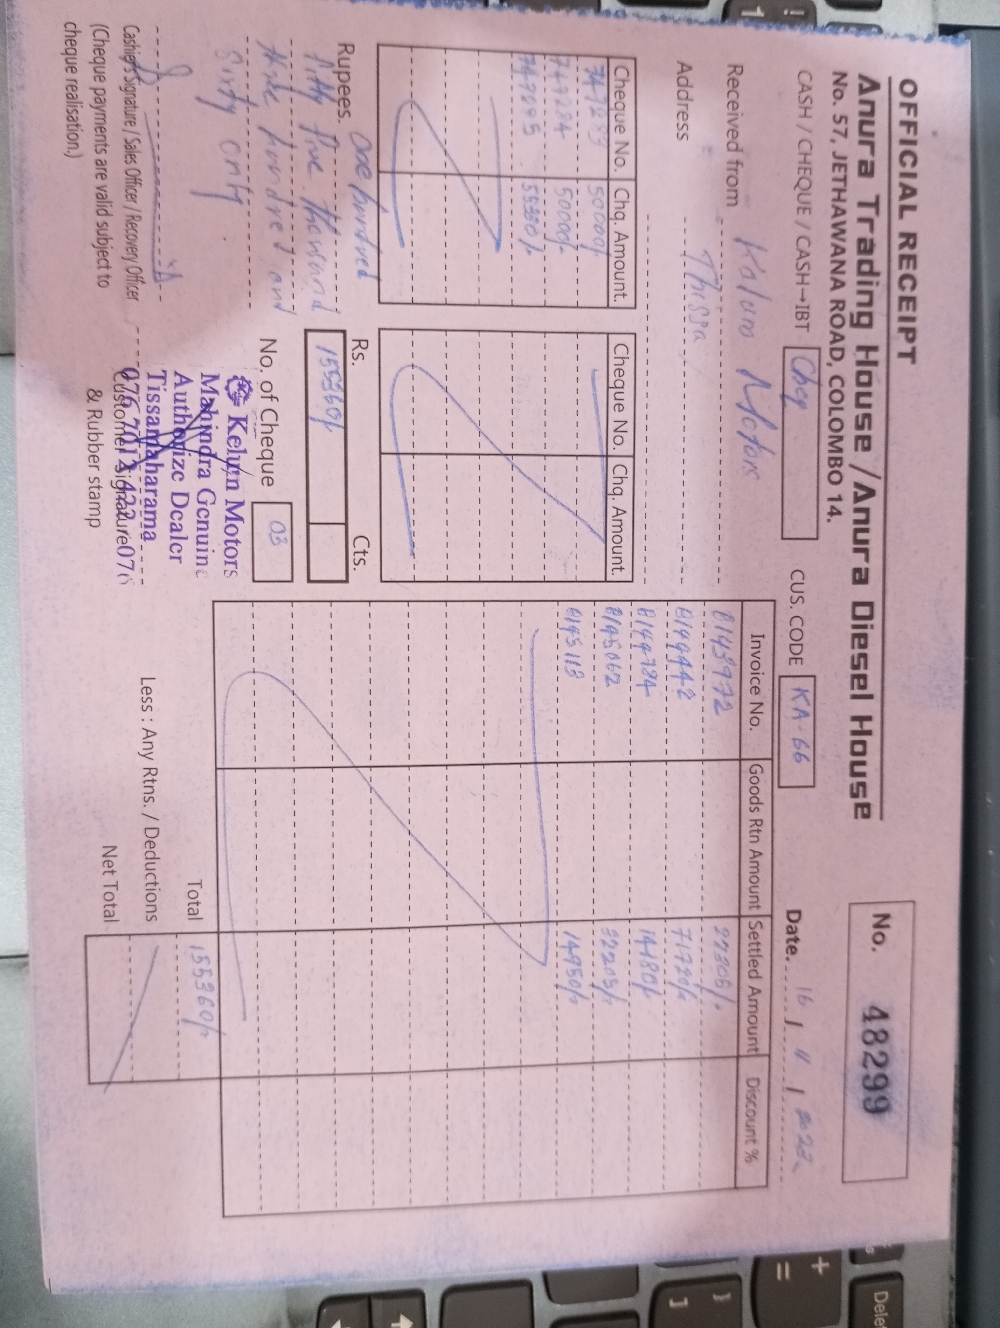 OFFICIAL RECEIPT
Anura Trading House / Anura Diesel House
No. 57, JETHAWANA ROAD, COLOMBO 14.
No. 48299
CASH / CHEQUE / CASH→IBT Cheq
CUS. CODE KA-66
Date. 16 / 11 / 2022
Received from Motors
Address Thissa
Cheque No. Chq. Amount. Cheque No. Chq. Amount.
50000/-
747284 50000/-
55360/-
Invoice No. Goods Rtn Amount Settled Amount Discount %
8143972
8144442 71720/-
8144784 14180/-
8145062
8145113 14950/-
Rupees. One hundred
fifty five thousand
three hundred and
Sixty only
Rs. Cts.
155360/-
No. of Cheque 03
Total 155360/-
Less : Any Rtns. / Deductions
Net Total
Kelum Motors
Mahindra Genuine
Authorize Dealer
Tissamaharama
Cashier Signature / Sales Officer / Recovery Officer
(Cheque payments are valid subject to
cheque realisation.)
Customer Signature
& Rubber stamp